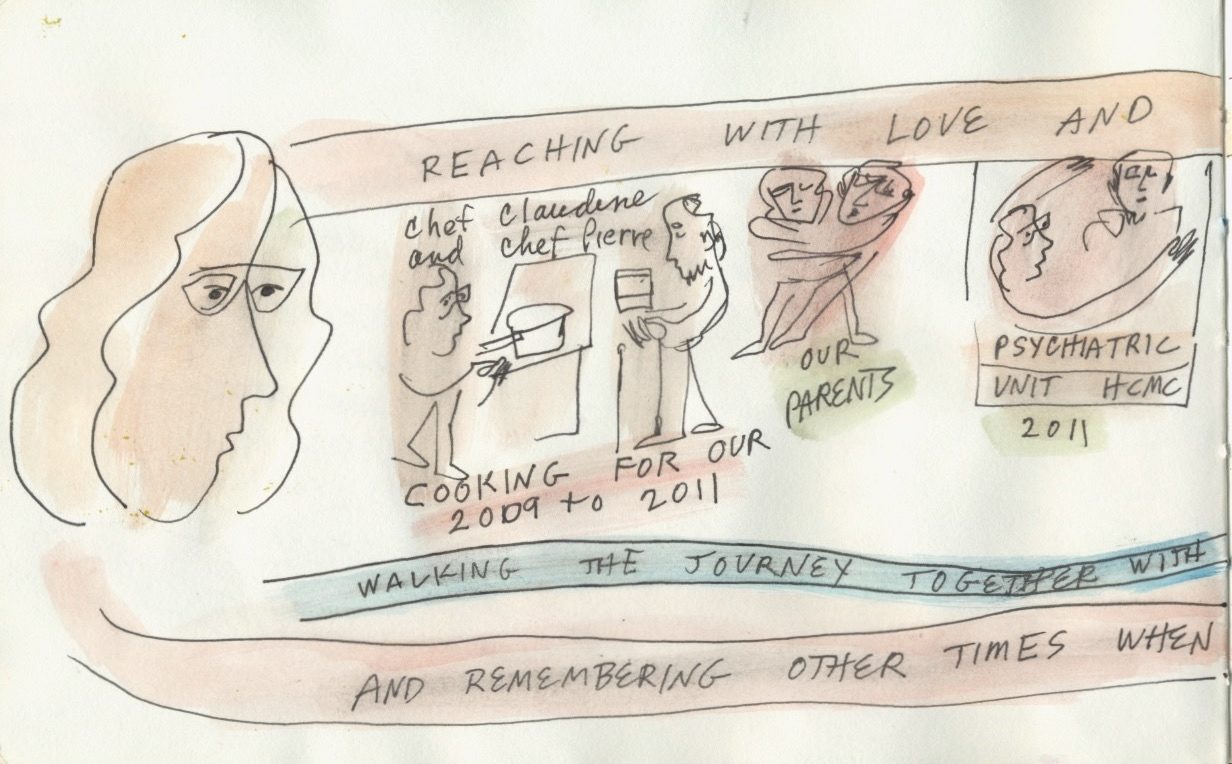 REACHING WITH LOVE AND
chef Claudine
and chef Pierre
COOKING FOR OUR
2009 to 2011
OUR
PARENTS
PSYCHIATRIC
UNIT HCMC
2011
WALKING THE JOURNEY TOGETHER WITH
AND REMEMBERING OTHER TIMES WHEN